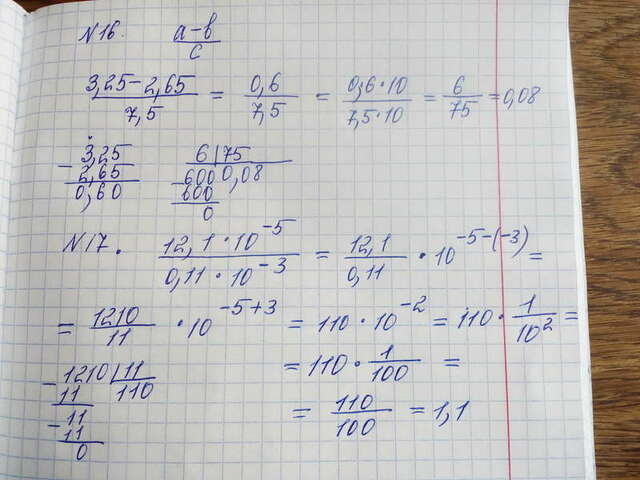 N16. a-b/c
3,25-2,65/7,5 = 0,6/7,5 = 0,6·10/7,5·10 = 6/75 = 0,08
- 3,25 6|75
2,65 -600 0,08
0,60 600
0
N17. 12,1·10^-5/0,11·10^-3 = 12,1/0,11 · 10^-5-(-3) =
= 1210/11 · 10^-5+3 = 110·10^-2 = 110·1/10^2 =
= 110·1/100 =
- 1210|11
11 110
-11
11
0
= 110/100 = 1,1